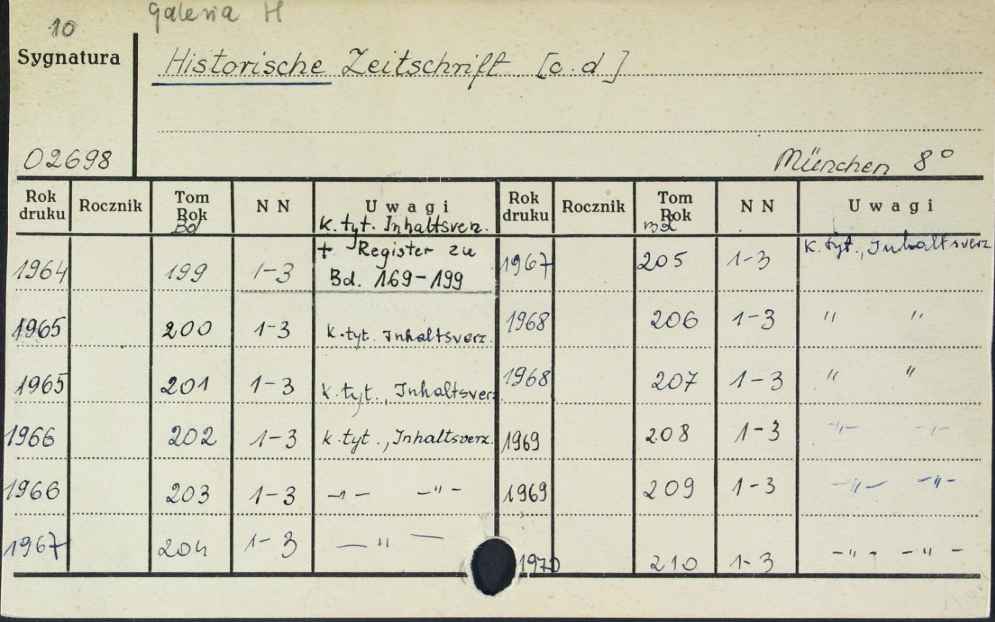 10 Galeria H
Sygnatura Historische Zeitschrift [o.d]
02698 München 8°
Rok druku Rocznik Tom Rok Bd NN Uwagi Rok druku Rocznik Tom Rok Bd NN Uwagi
1964 199 1-3 k. tyt. Inhaltsverz. + Register zu Bd. 169-199 1967 205 1-3 k. tyt., Inhaltsverz
1965 200 1-3 k. tyt. Inhaltsverz. 1968 206 1-3 " "
1965 201 1-3 k. tyt., Inhaltsverz 1968 207 1-3 " "
1966 202 1-3 k. tyt., Inhaltsverz. 1969 208 1-3 -"- -"-
1966 203 1-3 -"- -"- 1969 209 1-3 -"- -"-
1967 204 1-3 -"- 1970 210 1-3 -"- -"-